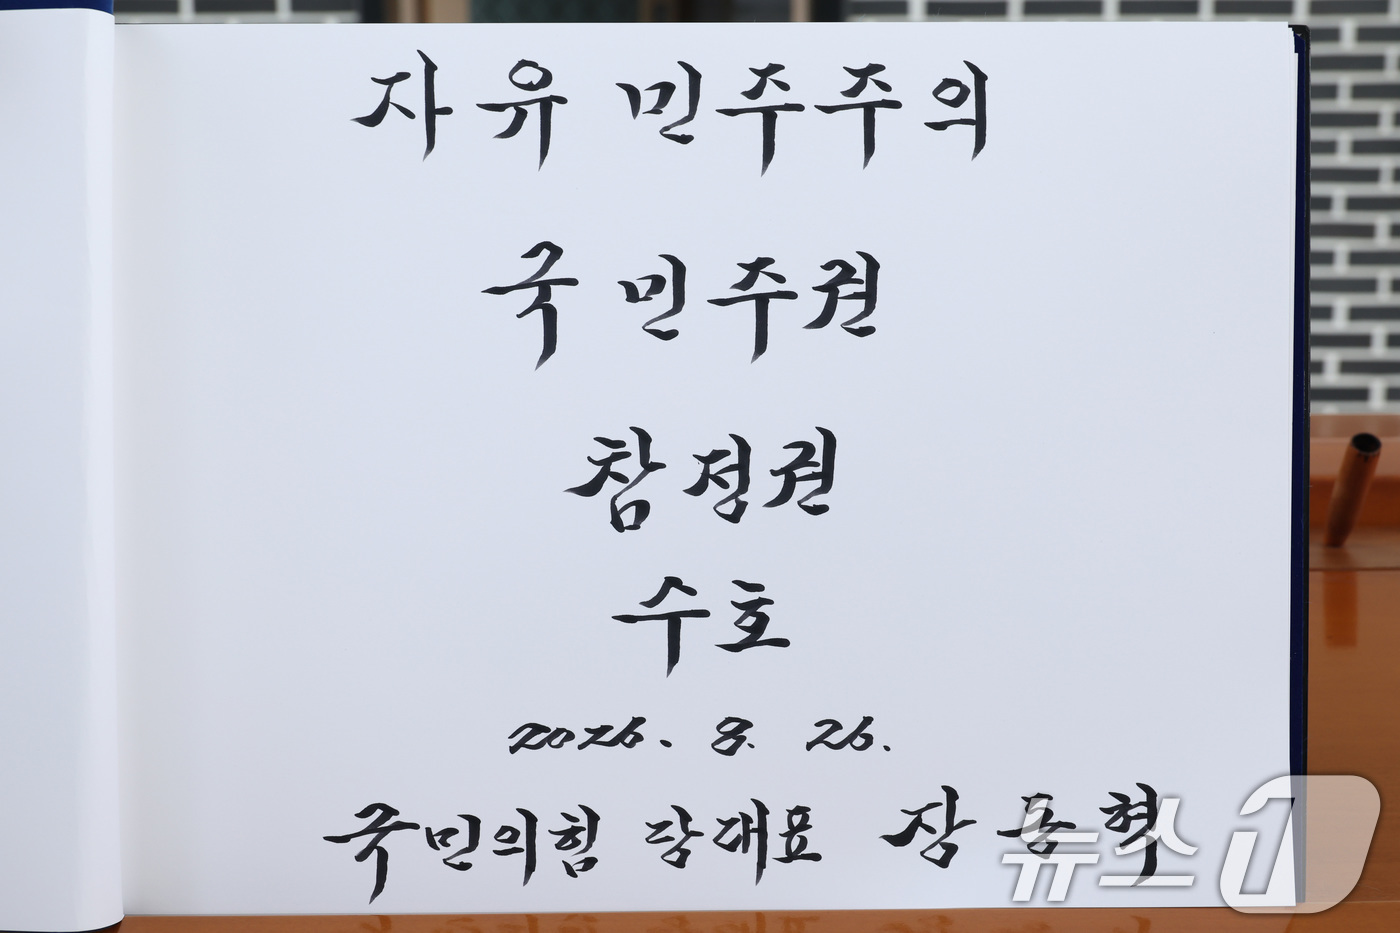 자유 민주주의
국민주권
참정권
수호
2026. 8. 26.
국민의힘 당대표 장동혁
뉴스1